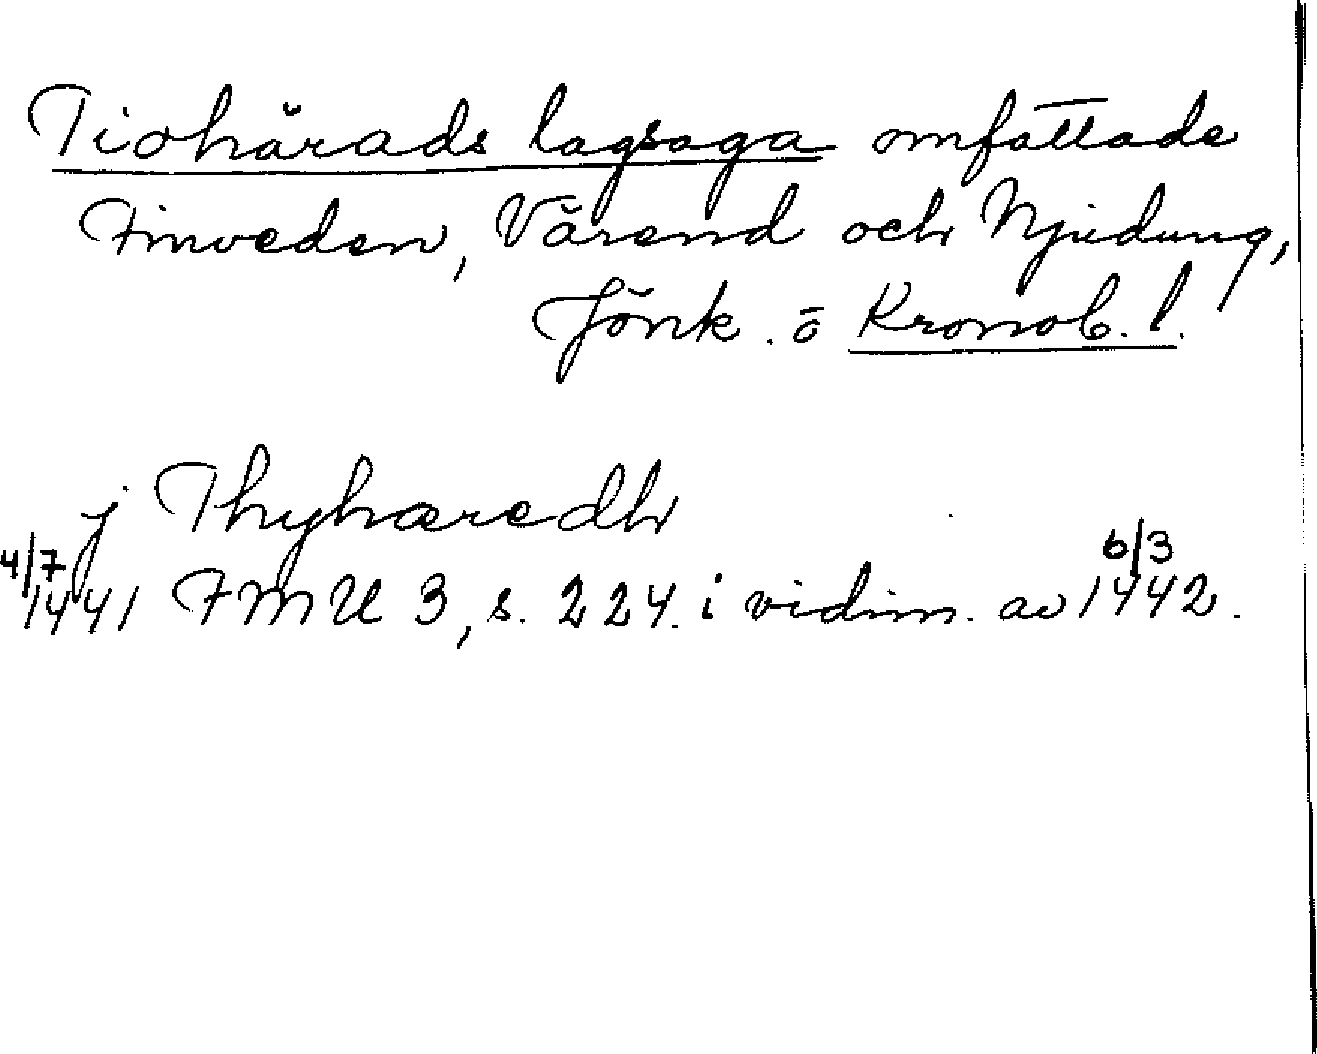 Tiohärads lagsaga omfattade
Finveden, Värend och Njudung,
Jönk. o Kronob. l.
j Thyhæredh
4/7 1441 FMU 3, s. 224. i vidim. av 6/3 1442.